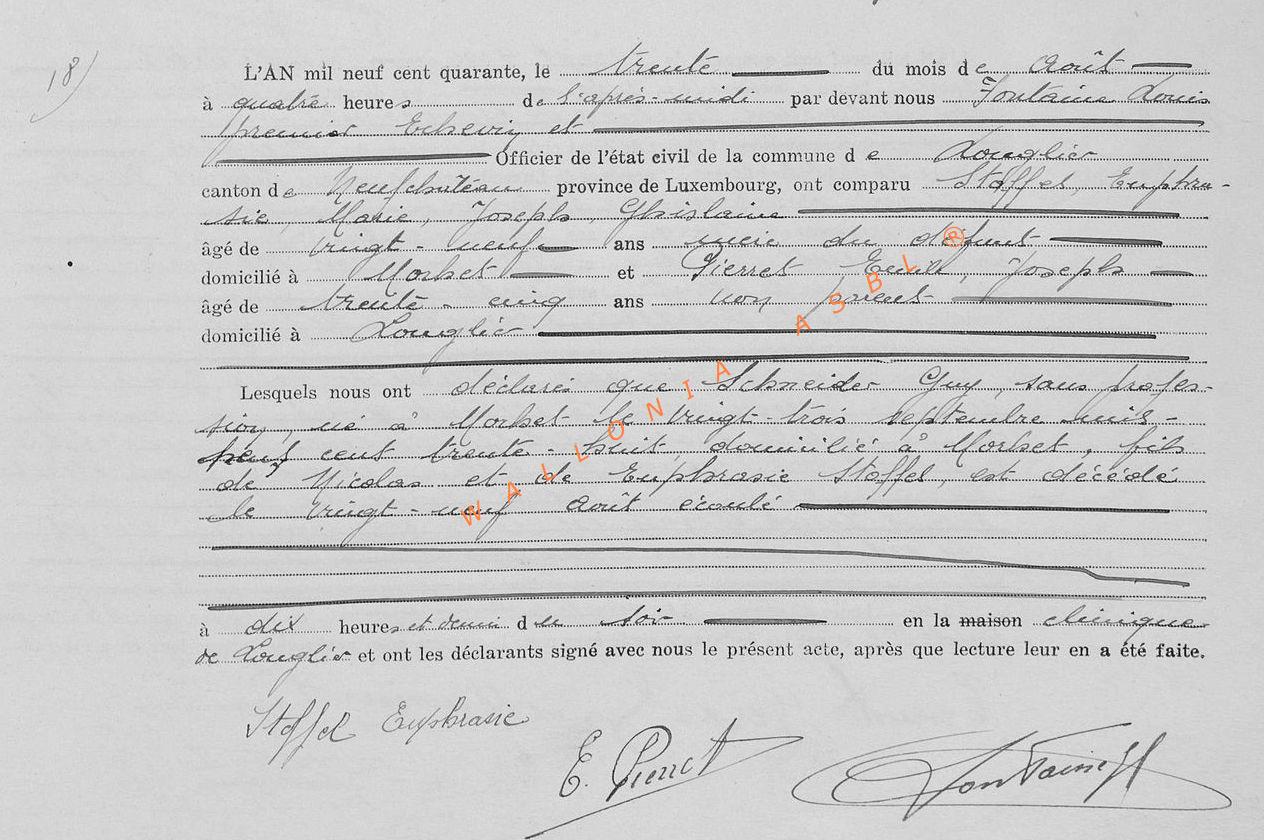 18)
L'AN mil neuf cent quarante, le trente du mois de Août
à quatre heures de l'après-midi par devant nous Fontaine Louis
premier Echevin et
Officier de l'état civil de la commune de Longlier
canton de Neufchâteau province de Luxembourg, ont comparu Stoffel, Euphra-
sie, Marie, Joseph, Ghislaine
âgé de vingt-neuf ans mère du défunt
domicilié à Morhet et Pierret Emile, Joseph
âgé de trente-cinq ans non parent
domicilié à Longlier
Lesquels nous ont déclaré que Schneider Guy, sans profes-
sion, né à Morhet le vingt-trois septembre mil-
neuf cent trente-huit, domicilié à Morhet, fils
de Nicolas et de Euphrasie Stoffel, est décédé
le vingt-neuf août écoulé
à dix heures et demi du soir en la maison clinique
de Longlier et ont les déclarants signé avec nous le présent acte, après que lecture leur en a été faite.
Stoffel Euphrasie
E. Pierret
Fontaine
WALLONIA ASBL ®